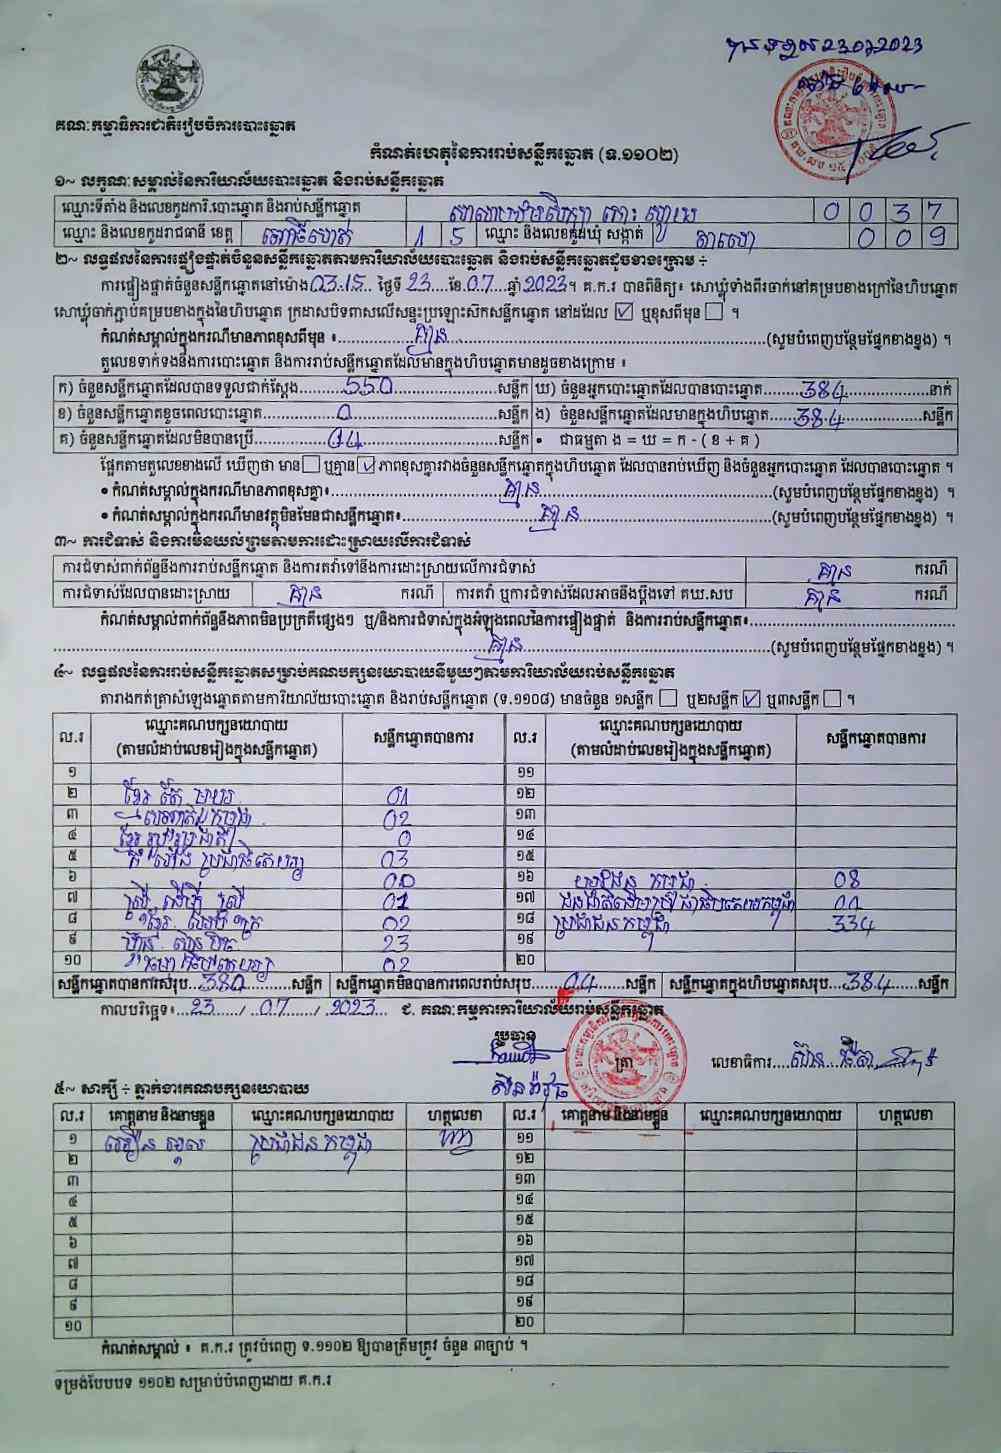 បានទទួល 23.07.2023
គណៈកម្មាធិការជាតិរៀបចំការបោះឆ្នោត
កំណត់ហេតុនៃការរាប់សន្លឹកឆ្នោត (ទ.១១០២)
១~ លក្ខណៈសម្គាល់នៃការិយាល័យបោះឆ្នោត និងរាប់សន្លឹកឆ្នោត
ឈ្មោះទីតាំង និងលេខកូដការិ.បោះឆ្នោត និងរាប់សន្លឹកឆ្នោត 0 0 3 7
ឈ្មោះ និងលេខកូដរាជធានី ខេត្ត ពោធិ៍សាត់ 1 5 ឈ្មោះ និងលេខកូដឃុំ សង្កាត់ 0 0 9
២~ លទ្ធផលនៃការផ្ទៀងផ្ទាត់ចំនួនសន្លឹកឆ្នោតតាមការិយាល័យបោះឆ្នោត និងរាប់សន្លឹកឆ្នោតដូចខាងក្រោម ÷
ការផ្ទៀងផ្ទាត់ចំនួនសន្លឹកឆ្នោតនៅម៉ោង 03.15 ថ្ងៃទី 23 ខែ 07 ឆ្នាំ 2023។ គ.ក.រ បានពិនិត្យ៖ សោឃ្លុំទាំងពីរចាក់នៅគម្របខាងក្រៅនៃហិបឆ្នោត
សោឃ្លុំចាក់ភ្ជាប់គម្របខាងក្នុងនៃហិបឆ្នោត ក្រដាសបិទពាសលើសន្ទះប្រឡោះស៊កសន្លឹកឆ្នោត នៅដដែល ☑ ឬខុសពីមុន ☐ ។
កំណត់សម្គាល់ក្នុងករណីមានភាពខុសពីមុន ៖ គ្មាន (សូមបំពេញបន្ថែមផ្នែកខាងខ្នង) ។
តួលេខទាក់ទងនឹងការបោះឆ្នោត និងការរាប់សន្លឹកឆ្នោតដែលមានក្នុងហិបឆ្នោតមានដូចខាងក្រោម ៖
ក) ចំនួនសន្លឹកឆ្នោតដែលបានទទួលជាក់ស្តែង 550 សន្លឹក ឃ) ចំនួនអ្នកបោះឆ្នោតដែលបានបោះឆ្នោត 384 នាក់
ខ) ចំនួនសន្លឹកឆ្នោតខូចពេលបោះឆ្នោត 0 សន្លឹក ង) ចំនួនសន្លឹកឆ្នោតដែលមានក្នុងហិបឆ្នោត 384 សន្លឹក
គ) ចំនួនសន្លឹកឆ្នោតដែលមិនបានប្រើ សន្លឹក • ជាធម្មតា ង = ឃ = ក - ( ខ + គ )
ផ្អែកតាមតួលេខខាងលើ ឃើញថា មាន ☐ ឬគ្មាន ☑ ភាពខុសគ្នារវាងចំនួនសន្លឹកឆ្នោតក្នុងហិបឆ្នោត ដែលបានរាប់ឃើញ និងចំនួនអ្នកបោះឆ្នោត ដែលបានបោះឆ្នោត ។
• កំណត់សម្គាល់ក្នុងករណីមានភាពខុសគ្នា៖ គ្មាន (សូមបំពេញបន្ថែមផ្នែកខាងខ្នង) ។
• កំណត់សម្គាល់ក្នុងករណីមានវត្ថុមិនមែនជាសន្លឹកឆ្នោត៖ គ្មាន (សូមបំពេញបន្ថែមផ្នែកខាងខ្នង) ។
៣~ ការជំទាស់ និងការមិនយល់ព្រមតាមការដោះស្រាយលើការជំទាស់
ការជំទាស់ពាក់ព័ន្ធនឹងការរាប់សន្លឹកឆ្នោត និងការតវ៉ាទៅនឹងការដោះស្រាយលើការជំទាស់ គ្មាន ករណី
ការជំទាស់ដែលបានដោះស្រាយ គ្មាន ករណី ការតវ៉ា ឬការជំទាស់ដែលអាចនឹងប្តឹងទៅ គឃ.សប គ្មាន ករណី
កំណត់សម្គាល់ពាក់ព័ន្ធនឹងភាពមិនប្រក្រតីផ្សេងៗ ឬ/និងការជំទាស់ក្នុងអំឡុងពេលនៃការផ្ទៀងផ្ទាត់ និងការរាប់សន្លឹកឆ្នោត៖
គ្មាន (សូមបំពេញបន្ថែមផ្នែកខាងខ្នង) ។
៤~ លទ្ធផលនៃការរាប់សន្លឹកឆ្នោតសម្រាប់គណបក្សនយោបាយនីមួយៗតាមការិយាល័យរាប់សន្លឹកឆ្នោត
តារាងកត់ត្រាសំឡេងឆ្នោតតាមការិយាល័យបោះឆ្នោត និងរាប់សន្លឹកឆ្នោត (ទ.១១០៨) មានចំនួន ១សន្លឹក ☐ ឬ២សន្លឹក ☑ ឬ៣សន្លឹក ☐ ។
ល.រ ឈ្មោះគណបក្សនយោបាយ សន្លឹកឆ្នោតបានការ ល.រ ឈ្មោះគណបក្សនយោបាយ សន្លឹកឆ្នោតបានការ
(តាមលំដាប់លេខរៀងក្នុងសន្លឹកឆ្នោត) (តាមលំដាប់លេខរៀងក្នុងសន្លឹកឆ្នោត)
១ ១១
២ ខ្មែរ 01 ១២
៣ 02 ១៣
៤ ខ្មែររួបរួមជាតិ 0 ១៤
៥ 03 ១៥
៦ 00 ១៦ កម្ពុជា 08
៧ 01 ១៧
៨ ខ្មែរ 02 ១៨ ប្រជាជនកម្ពុជា 334
៩ ហ្វ៊ុនស៊ិនប៉ិច 23 ១៩
១០ 02 ២០
សន្លឹកឆ្នោតបានការសរុប 380 សន្លឹក សន្លឹកឆ្នោតមិនបានការពេលរាប់សរុប 04 សន្លឹក សន្លឹកឆ្នោតក្នុងហិបឆ្នោតសរុប 384 សន្លឹក
កាលបរិច្ឆេទ៖ 23 / 07 / 2023 ជ. គណៈកម្មការការិយាល័យរាប់សន្លឹកឆ្នោត
ប្រធាន
ត្រា លេខាធិការ
៥~ សាក្សី ÷ ភ្នាក់ងារគណបក្សនយោបាយ
ល.រ គោត្តនាម និងនាមខ្លួន ឈ្មោះគណបក្សនយោបាយ ហត្ថលេខា ល.រ គោត្តនាម និងនាមខ្លួន ឈ្មោះគណបក្សនយោបាយ ហត្ថលេខា
១ ប្រជាជនកម្ពុជា ១១
២ ១២
៣ ១៣
៤ ១៤
៥ ១៥
៦ ១៦
៧ ១៧
៨ ១៨
៩ ១៩
១០ ២០
កំណត់សម្គាល់ ៖ គ.ក.រ ត្រូវបំពេញ ទ.១១០២ ឱ្យបានត្រឹមត្រូវ ចំនួន ៣ច្បាប់ ។
ទម្រង់បែបបទ ១១០២ សម្រាប់បំពេញដោយ គ.ក.រ